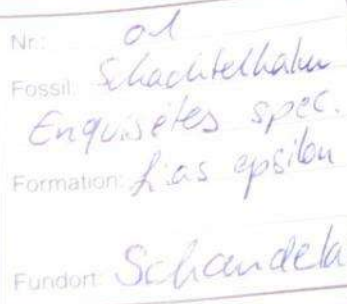 Nr.: 01
Fossil: Schachtelhalm
Enquisetes spec.
Formation: Lias epsilon
Fundort: Schandela